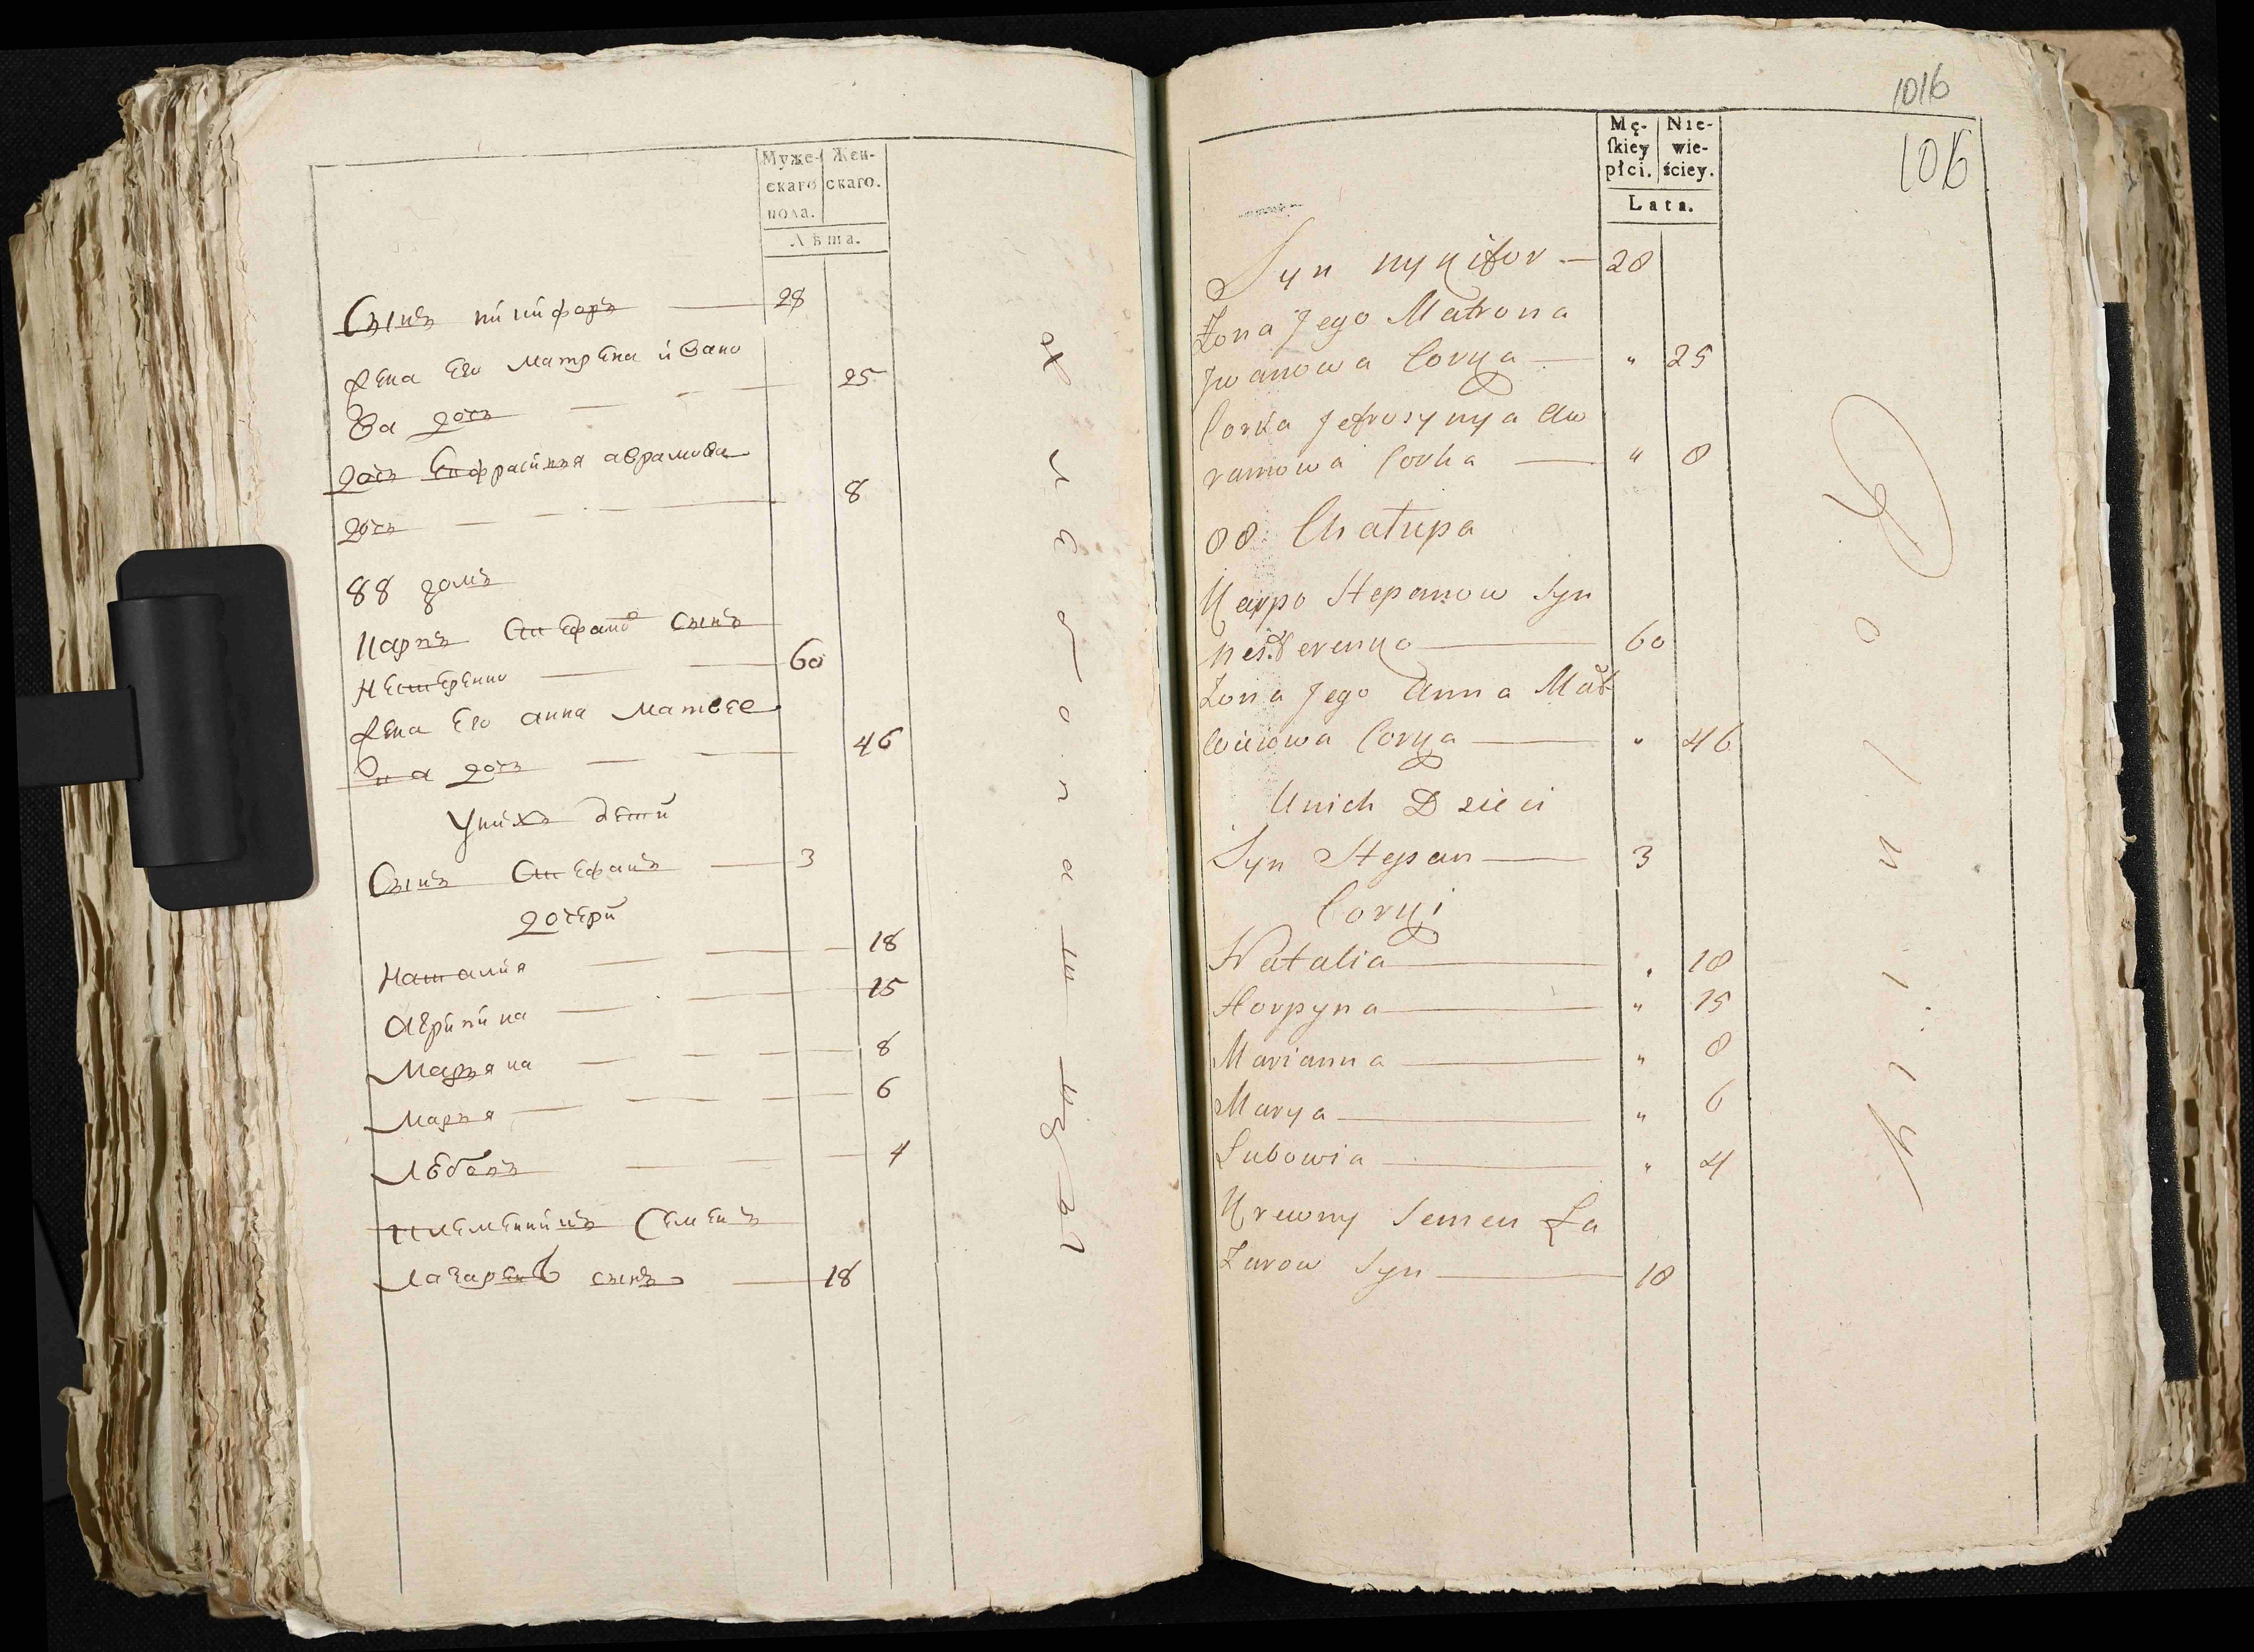 Муже-
скаго
пола.
Жен-
скаго.
Лѣта.
Сынъ никифоръ — 28
жена Его матрена ивано
ва дочь — 25
дочь Ефрасиния аврамова
дочь — 8
88 домъ
Карпъ Стефановъ сынъ
Нестеренко — 60
жена Его анна матвее
вна дочь — 46
У нихъ дети
Сынъ Стефанъ — 3
дочери
Наталия — 18
Агрипина — 15
Марьяна — 8
Марья — 6
Любовь — 4
племенникъ Семенъ
лазаревъ сынъ — 18
1016
106
Mę-
ſkiey
płci.
Nie-
wie-
ściey.
Lata.
Syn nykifor — 28
Żona Jego Matrona
Jwanowa Corka — " 25
Corka Jefrosynya Aw
ramowa Corka — " 8
88 Chałupa
Karpo Stepanow Syn
nesterenko — 60
Żona Jego Anna Mat
wiiowa Corka — " 46
Unich Dzieci
Syn Stepan — 3
Corki
Natalia — " 18
Horpyna — " 15
Marianna — " 8
Marya — " 6
Lubowia — " 4
Krewny Semen Ła
Zarow Syn — 18